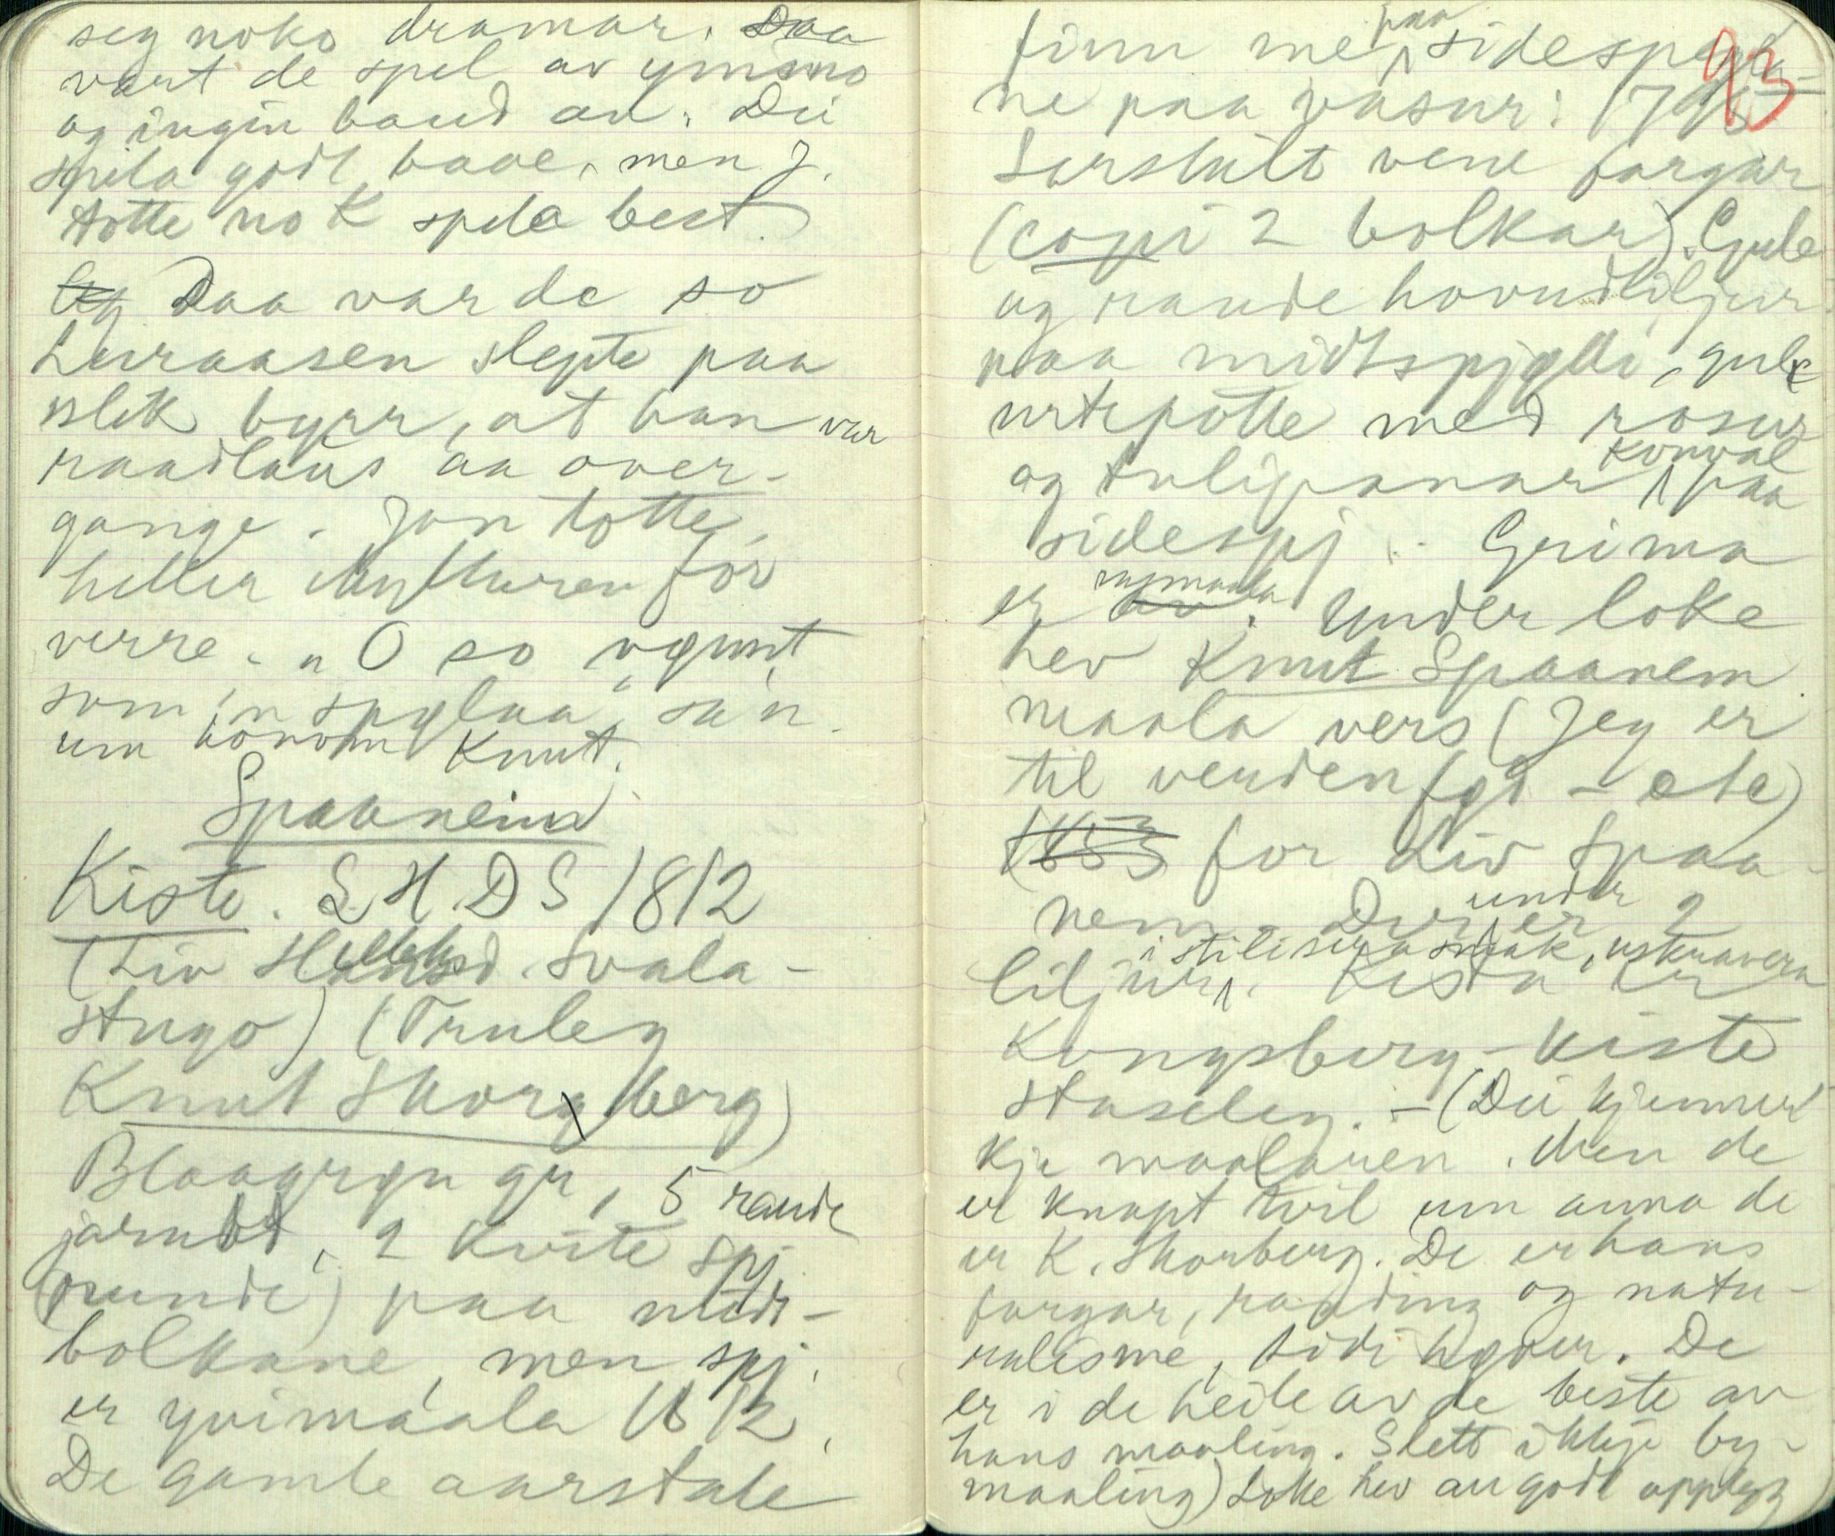 seg noko dramar. Daa
vart de spel av ymsmo
og ingin baud av. Dei
spela godt baae, men J.
totte no K spela best.
Og Daa var de so
Luraasen slepte paa
slik byrr, at han var
raadlaus aa over-
gange. Jon totte,
heller Myllaren for
verre. "O so vønt
som 'n spølaa", sa'n
um honom Knut.
Spaaneim
Kiste. L H D S 1812
(Liv d. Svala-
stugo) (Truleg
Knut Skorgberg)
Blaagrøn gr, 5 raude
jarnbd, 2 kvite spj
(runde) paa midt-
bolkane, men spj.
er yvimaala 1812.
De gamle aarstale
finn me paa sidespegla-
ne paa vasur: 1796
93
Serskilt vene fargar
(copi 2 bolkar). Gule
og raude hovudliljur
paa midtspjølli, gule
urtepotte med rosur
og tulipanar konval paa
sidespj.. Grima
er av rugmaala. Under loke
hev Knut Spaanem
maala vers (Jeg er
til verden fød – etc)
1853 for Liv Spaa-
nem. Der er under 2
liljur, i stilisera smak, uskravera
. Kista er
Kongsberg-kiste
staseleg. – (Dei kjenner
kje maalaren. Men de
er knapt tvil um anna de
er K. Skorberg. De er hans
fargar, rading og natu-
ralisme, tidi høver. De
er i de heile av de beste av
hans maaling. Slett ikkje by-
maaling) Loke hev au godt opplegg